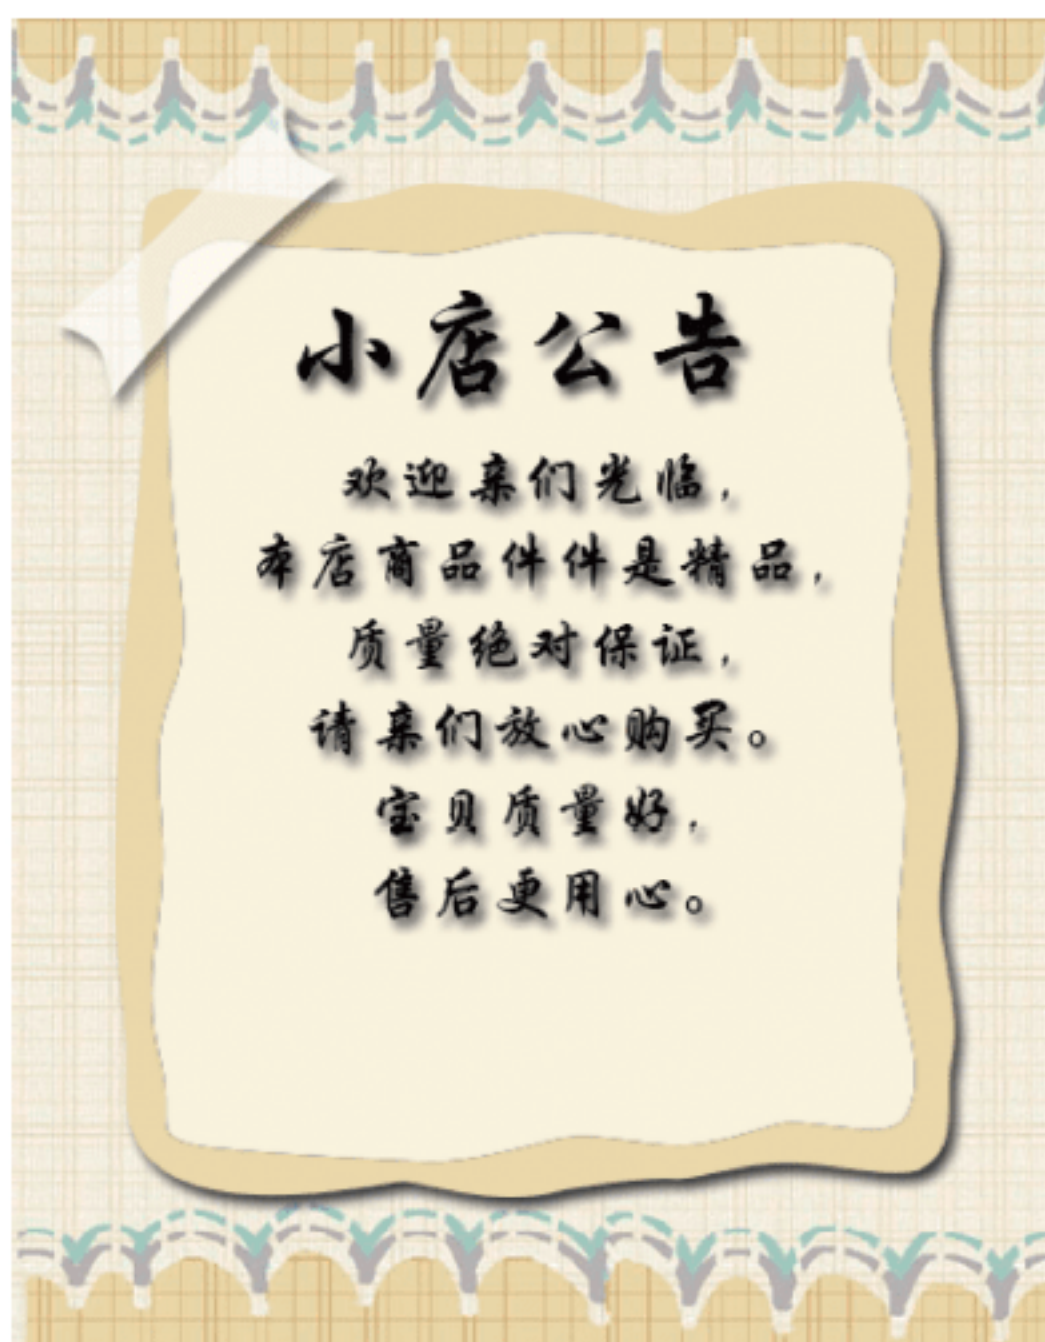 小店公告
欢迎亲们光临，
本店商品件件是精品，
质量绝对保证，
请亲们放心购买。
宝贝质量好，
售后更用心。